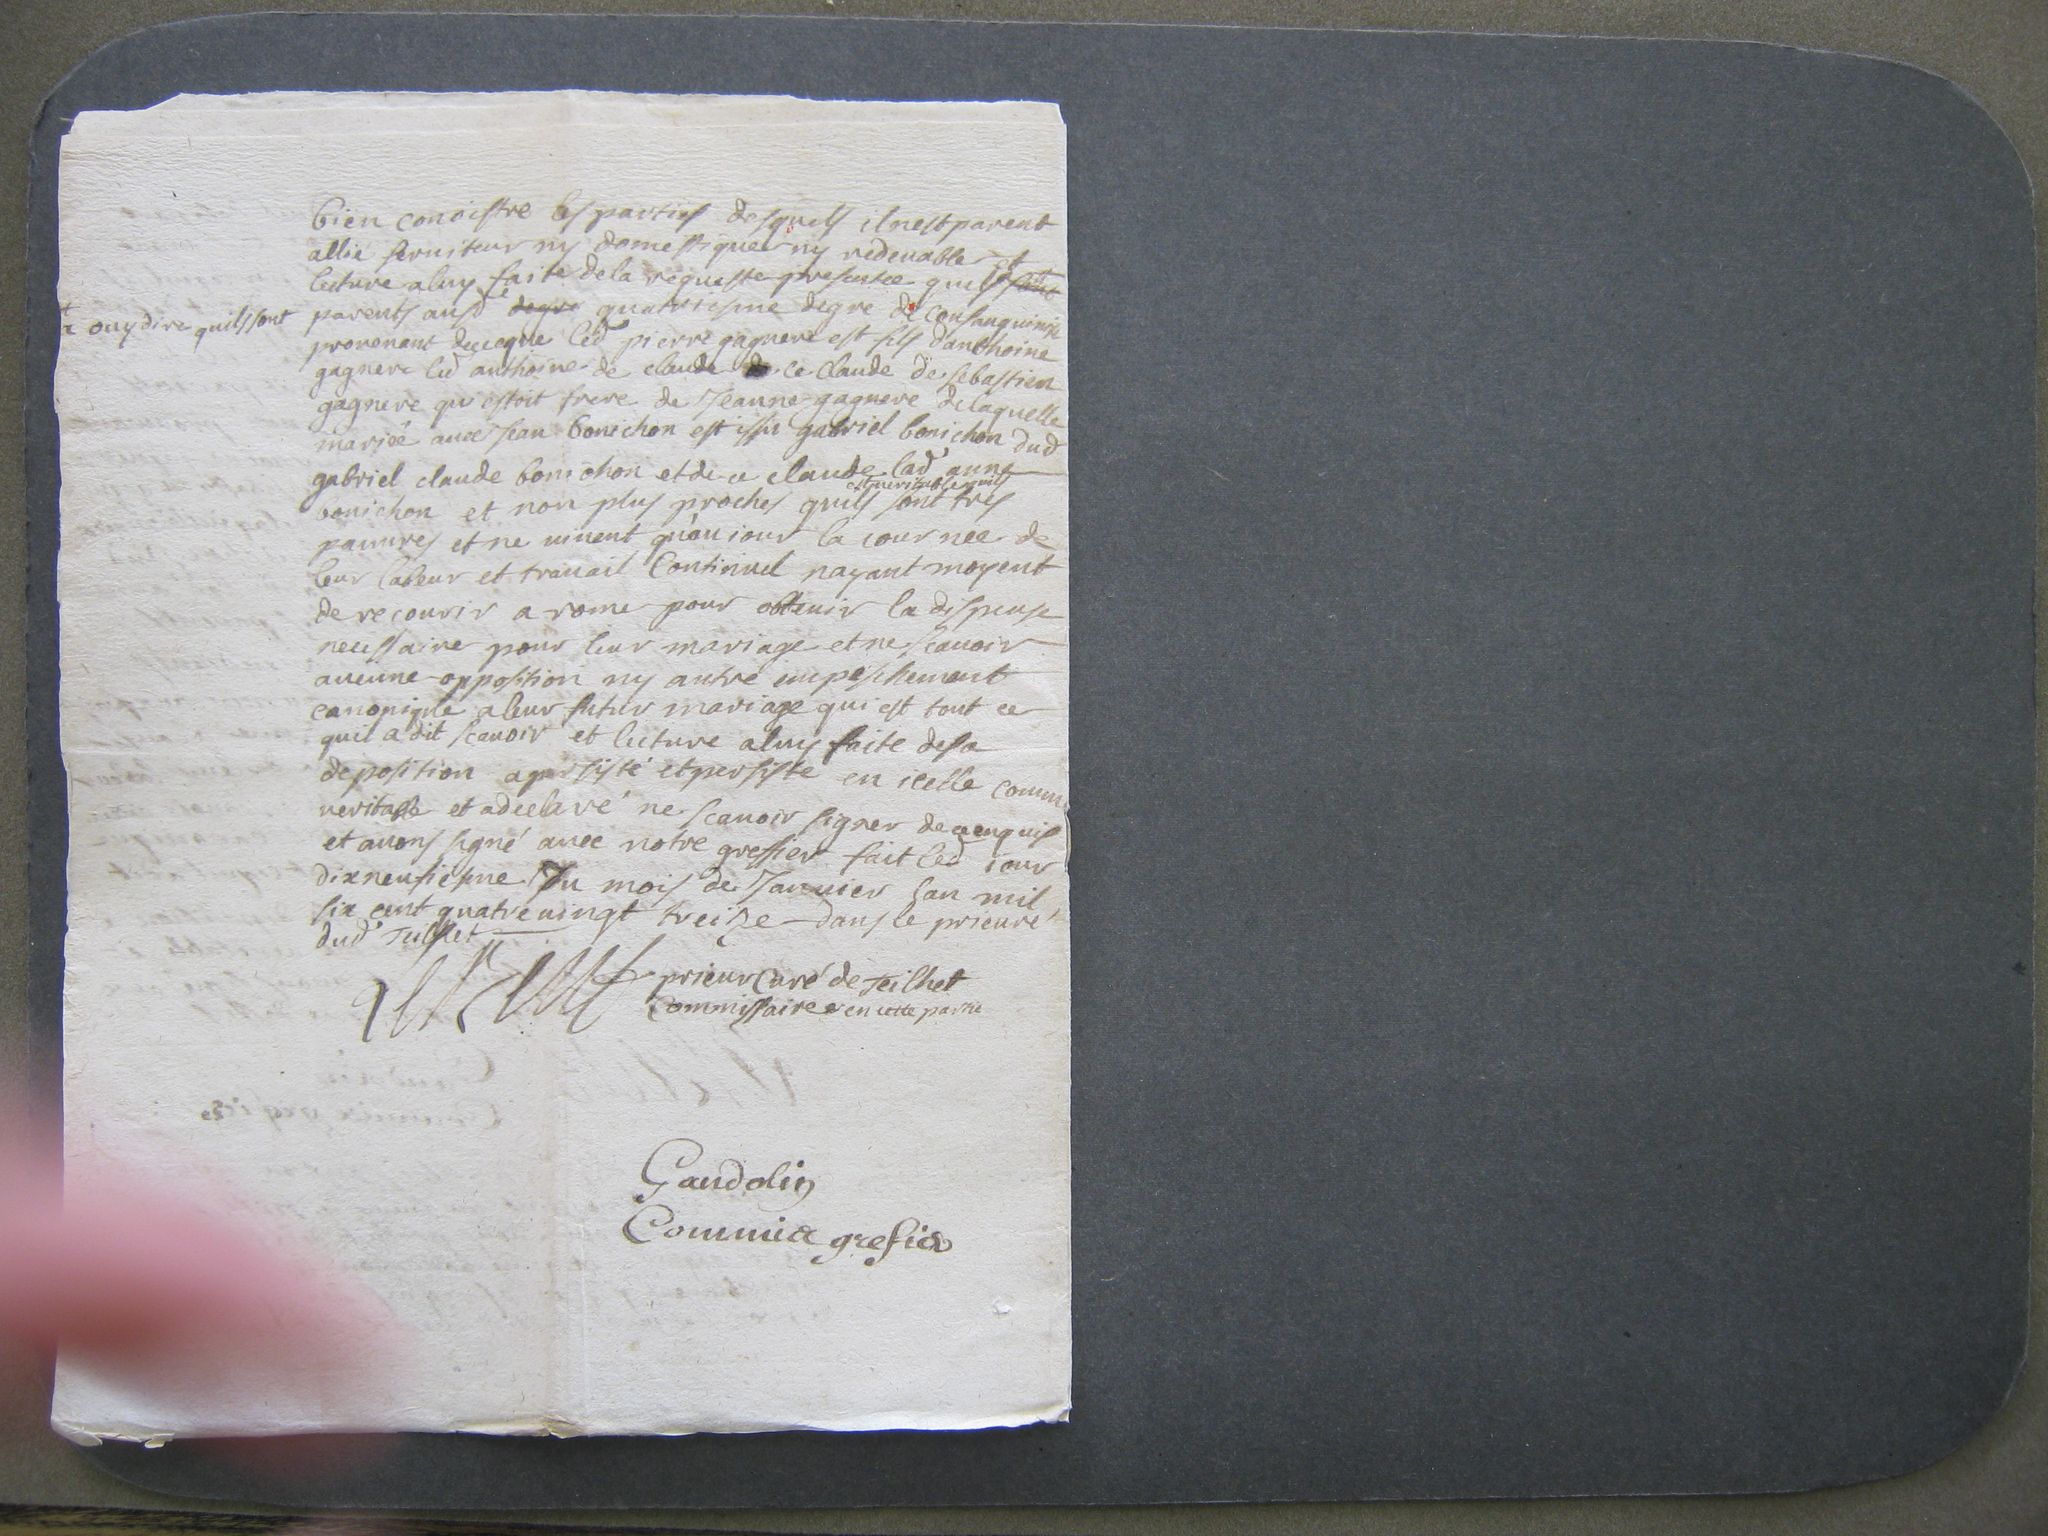 bien conoistre les parties desquels il nest parent
allié seruiteur ny domestique ny redeuable et
lecture a luy faite de la requeste presentee quils sont
a ouy dire quils sont
parents aud degre quatriesme degre de consanguinité
prouenant de ce que led pierre gagnere est fils danthoine
gagnere led anthoine de claude ce claude de sebastien
gagnere qui estoit frere de Jeanne gagnere de laquelle
mariée auec Jean bonichon est issu gabriel bonichon dud
gabriel claude bonichon et de ce claude lad anne
est veritable quils
bonichon et non plus proches quils sont tres
pauures et ne viuent qu'au iour la iournee de
leur labeur et trauail Continuel nayant moyent
de recourir a rome pour obtenir la dispense
necessaire pour leur mariage et ne scauoir
aucune opposition ny autre empeschement
canonique a leur futur mariage qui est tout ce
quil a dit scauoir et lecture a luy faite de sa
deposition a persisté et persiste en icelle comme
veritable et a declaré ne scauoir signer de ce enquis
et auons signé auec notre greffier fait led iour
dixneufiesme Du mois de Januier lan mil
six cent quatre uingt treize dans le prieuré
dud Teilhet
prieur Curé de Teilhet
Commissaire en cette partie
Gaudolin
Commis grefier